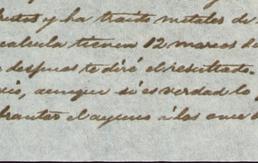 y ha traido metales de
calcula tienen 12 marcos
despues te diré el resultado.
aunque si es verdad lo
el ayuno á las once